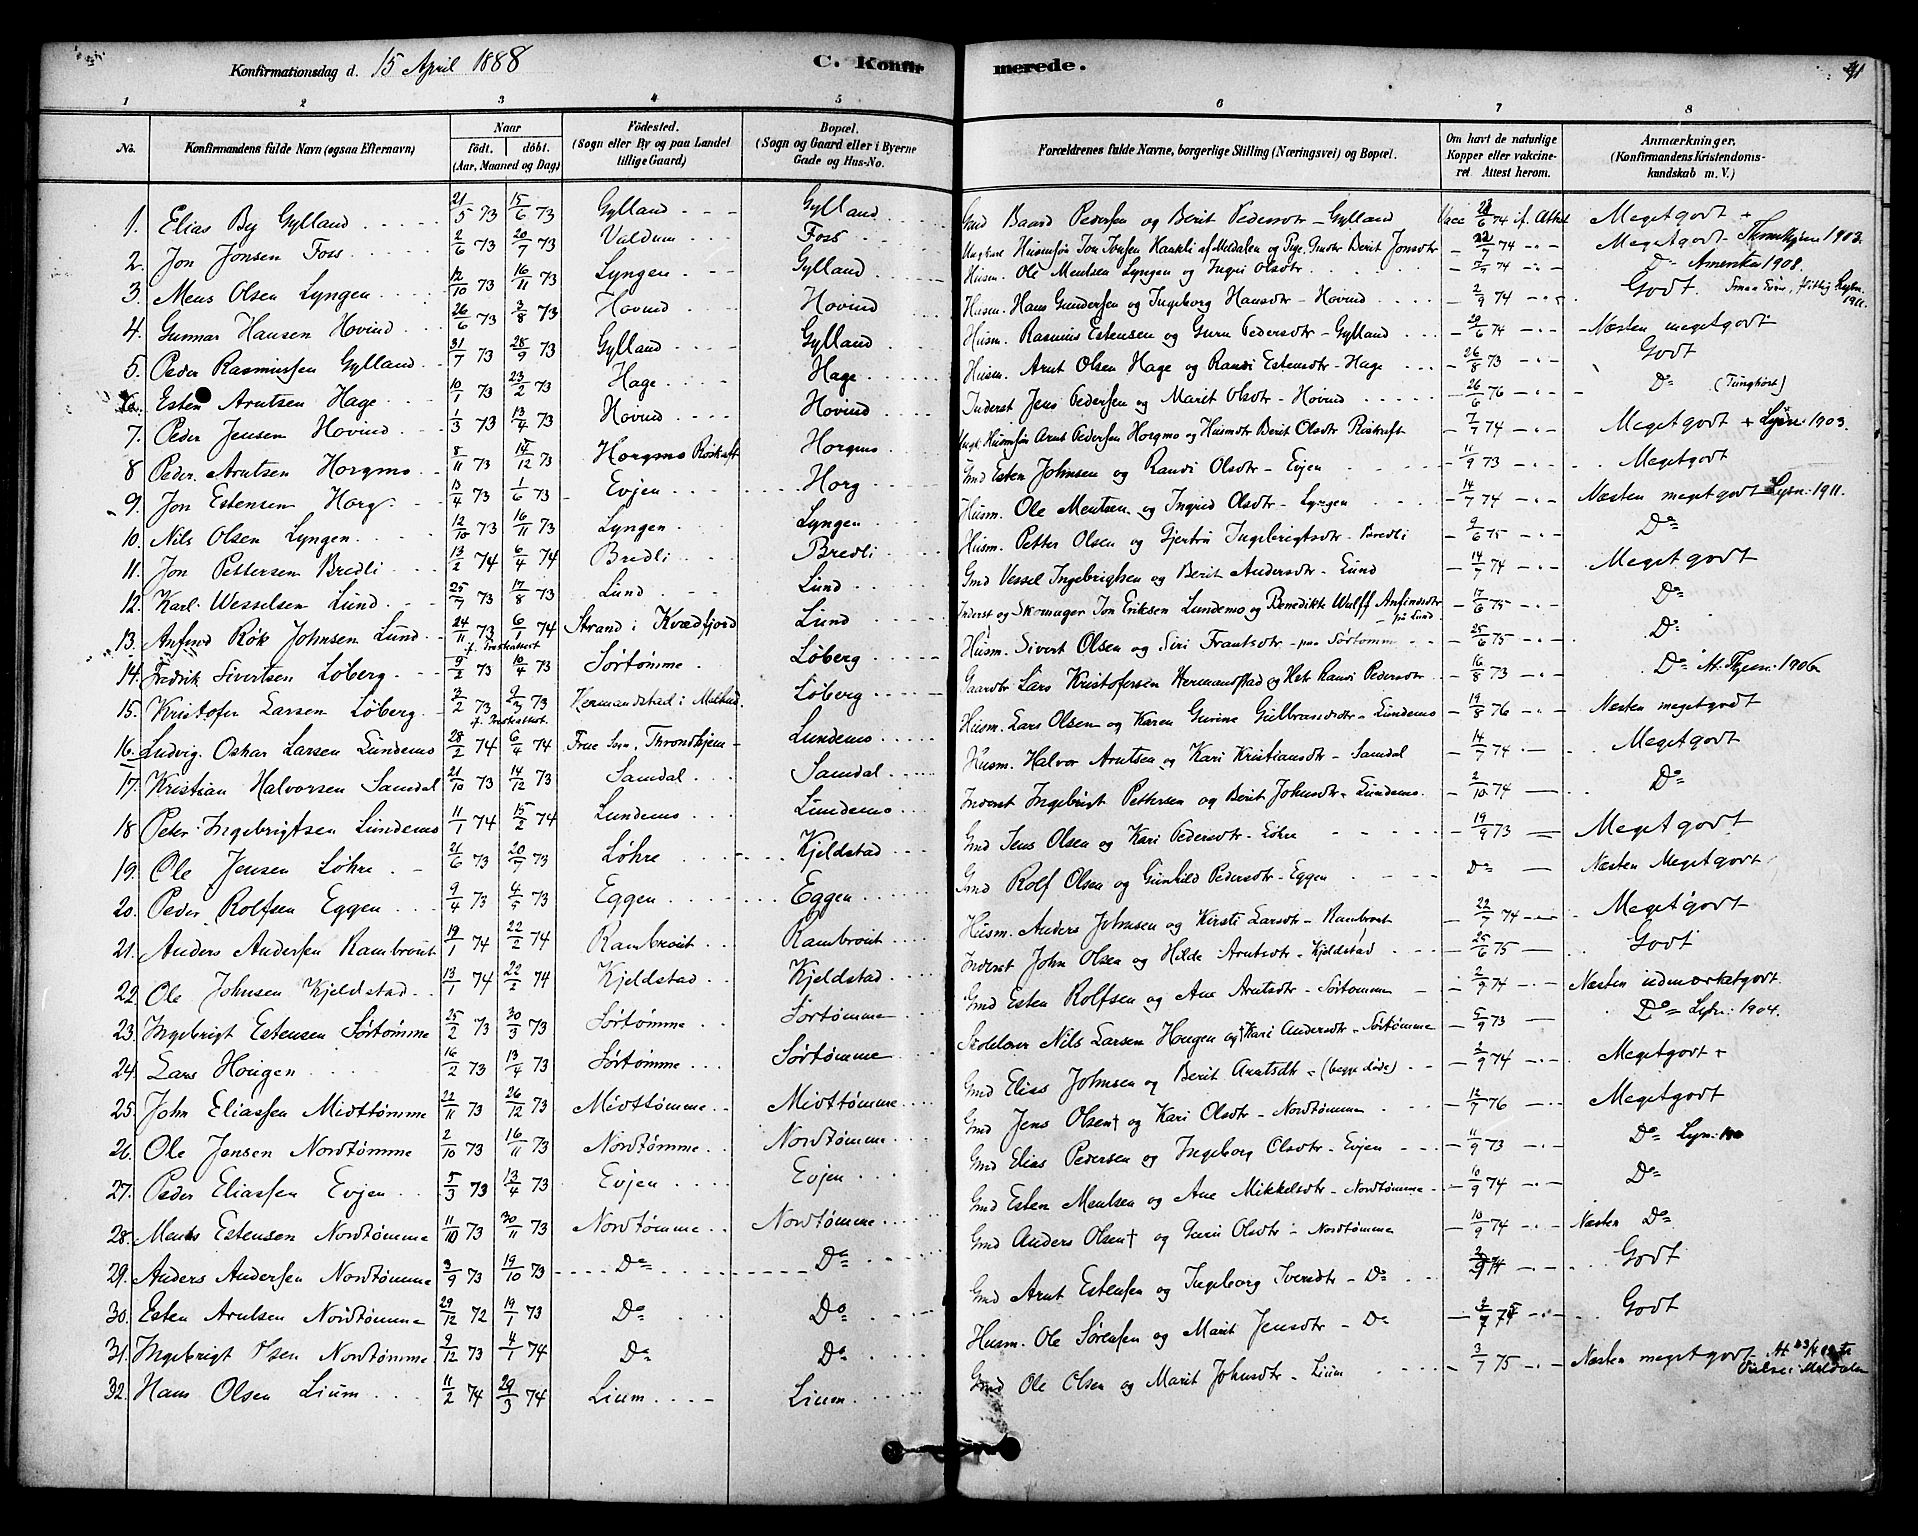 Konfirmationsdag d. 15 April 1888 C. Konfirmerede. 91
1 2 3 4 5 6 7 8
No. Konfirmandens fulde Navn (ogsaa Efternavn) Naar Födt. döbt. (Aar, Maaned og Dag) Födested. (Sogn eller By og paa Landet tillige Gaard) Bopæl. (Sogn og Gaard eller i Byerne Gade og Hus-No. Forældrenes fulde Navne, borgerlige Stilling (Næringsvei) og Bopæl. Om havt de naturlige Kopper eller vakcineret Attest herom. Anmærkninger. (Konfirmandens Kristendomskundskab m. V.)
1. Elias By Gylland 21/5 73 15/6 73 Gylland Gylland Gmd Baard Pedersen og Berit Pedersdtr - Gylland Vacc 74 if. Attest Megetgodt +
2. Jon Jonsen Foss 2/6 73 20/7 73 Valdum Foss Ungkarl Husmsøn Jon Haakli af Meldalen og Pige Berit Jonsdtr 74 Megetgodt 1903.
3. Mens Olsen Lyngen 12/10 73 16/11 73 Lyngen Gylland Husm. Ole Mentsen Lyngen og Ingri Olsdtr 74 Do Amerika 1908.
4. Gunnar Hansen Hovind 26/6 73 3/8 73 Hovind Hovind Husm. Hans Gundersen og Ingeborg Hansdtr - Hovind 2/9 74 Godt 1911.
5. Peder Rasmussen Gylland 31/7 73 28/9 73 Gylland Gylland Husm. Rasmus Estensen og Guru Pedersdtr - Gylland 29/6 74 Næsten megetgodt
6. Esten Arntsen Hage 10/1 73 23/2 73 Hage Hage Husm. Arnt Olsen Hage og Randi Estensdtr - Hage 26/8 73 Godt
7. Peder Jensen Hovind 1/3 73 13/4 73 Hovind Hovind Inderst Jens Pedersen og Marit Olsdtr - Hovind 26/6 76 Do (Tunghørt)
8 Peder Arntsen Horgmo 8/11 73 14/12 73 Horgmo Röskaft Horgmo Ungk. Husmsøn Arnt Pedersen Horgmo og Husmdtr Berit Olsdtr Röskaft 7/7 74 Megetgodt + Lysn: 1903.
9. Jon Estensen Horg 13/4 73 1/6 73 Evjen Horg Gmd Esten Johnsen og Randi Olsdtr - Evjen 11/9 73 Megetgodt
10. Nils Olsen Lyngen 12/10 73 16/11 73 Lyngen Lyngen Husm. Ole Mentsen og Ingrid Olsdtr - Lyngen 14/7 74 Næsten megetgodt Lysn: 1911.
11. Jon Pettersen Bredli 13/2 74 6/4 74 Bredli Bredli Husm. Petter Olsen og Gjertru Ingebrigtsdtr - Bredli 9/6 75 Do
12. Karl Wesselsen Lund 25/7 73 17/8 73 Lund Lund Gmd Vessel Ingebrigtsen og Berit Andersdtr - Lund 14/7 74 Megetgodt
13. Anfind Rök Johnsen Lund 24/11 73 6/1 74 Strand i Kvædfjord Lund Inderst og Skomager Jon Eriksen Lundemo og Benedikte Wulff Anfindsdtr - på Lund 17/6 75 Do
14. Fredrik Sivertsen Løberg 9/2 73 10/4 73 Sørtømme Løberg Husm. Sivert Olsen og Siri Frantsdtr - paa Sørtomm 25/6 75 Do
15. Kristofer Larsen Løberg 3/2 73 2/3 73 Hermandstad i Løberg Gaardbr Lars Kristofersen Hermanstad og Randi Pedersdtr 16/8 73 Do At. 1906
16. Ludvig Oskar Larsen Lundemo 28/2 74 6/4 74 Frue Sogn, Throndhjem Lundemo Husm. Lars Olsen og Karen Gurine Gulbrandsdtr - Lundemo 19/8 76 Næsten megetgodt
17. Kristian Halvorsen Samdal 21/10 73 14/12 73 Samdal Samdal Husm. Halvor Arntsen og Kari Kristiansdtr - Samdal 14/7 74 Megetgodt
18 Peter Ingebrigtsen Lundemo 11/1 74 15/2 74 Lundemo Lundemo Inderst Ingebrigt Pettersen og Berit Johnsdtr - Lundemo 2/10 74 Do
19. Ole Jensen Løhre 21/6 73 20/7 73 Løhre Kjeldstad Gmd Jens Olsen og Kari Pedersdtr - Løhre 19/9 73 Megetgodt
20. Peder Rolfsen Eggen 9/4 73 4/5 73 Eggen Eggen Gmd Rolf Olsen og Gunhild Pedersdtr - Eggen Do Næsten Megetgodt
21. Anders Andersen Rambrout 19/1 74 22/2 74 Rambrout Rambrout Husm. Anders Johnsen og Kirsti Larsdtr - Rambrout 22/7 74 Megetgodt
22 Ole Johnsen Kjeldstad 13/1 74 22/2 74 Kjeldstad Kjeldstad Inderst John Olsen og Hilde Arntsdtr - Kjeldstad 25/6 75 Godt
23. Ingebrigt Estensen Sørtømme 25/2 73 30/3 73 Sørtømme Sørtømme Gmd Esten Rolfsen og Ane Arntsdtr - Sørtommen 2/9 74 Næsten udmærketgodt.
24. Lars Hougen 16/2 73 13/4 73 Sørtømme Sørtømme Skolelærer Nils Larsen Hougen og Kari Andersdtr - Sørtømme 5/9 73 Do Lysn: 1904.
25. John Eliassen Midttømme 22/11 73 26/12 73 Midttømme Midttømme Gmd Elias Johnsen og Berit Arntsdtr - (begge døde) 2/9 74 Megetgodt +
26. Ole Jensen Nordtømme 2/10 73 16/11 73 Nordtømme Nordtømme Gmd Jens Olsen† og Kari Olsdtr - Nordtømmen 12/7 76 Megetgodt
27. Peder Eliassen Evjen 5/3 73 13/4 73 Evjen Evjen Gmd Elias Pedersen og Ingeborg Olsdtr - Evjen 11/9 73 Do Lysn:
28. Ments Estensen Nordtømme 11/10 73 30/11 73 Nordtømme Nordtømme Gmd Esten Mentsen og Ane Mikkelsdtr - Nordtømme 10/9 74 Do
29. Anders Andersen Nordtømme 3/9 73 19/10 73 Do Do Gmd Anders Olsen† og Guri Olsdtr - Nordtømme 10/9 74 Næsten Do
30. Esten Arntsen Nordtømme 29/12 72 19/1 73 Do Do Gmd Arnt Estensen og Ingeborg Iversdtr - Do 74 Godt
31. Ingebrigt Olsen Nordtømme 9/12 73 4/1 74 Do Do Husm. Ole Sørensen og Marit Jensdtr - Do Godt
32. Hans Olsen Lium 11/2 74 29/3 74 Lium Lium Gmd Ole Olsen og Marit Johnsdtr - Lium 3/7 75 Næsten megetgodt Meldalen